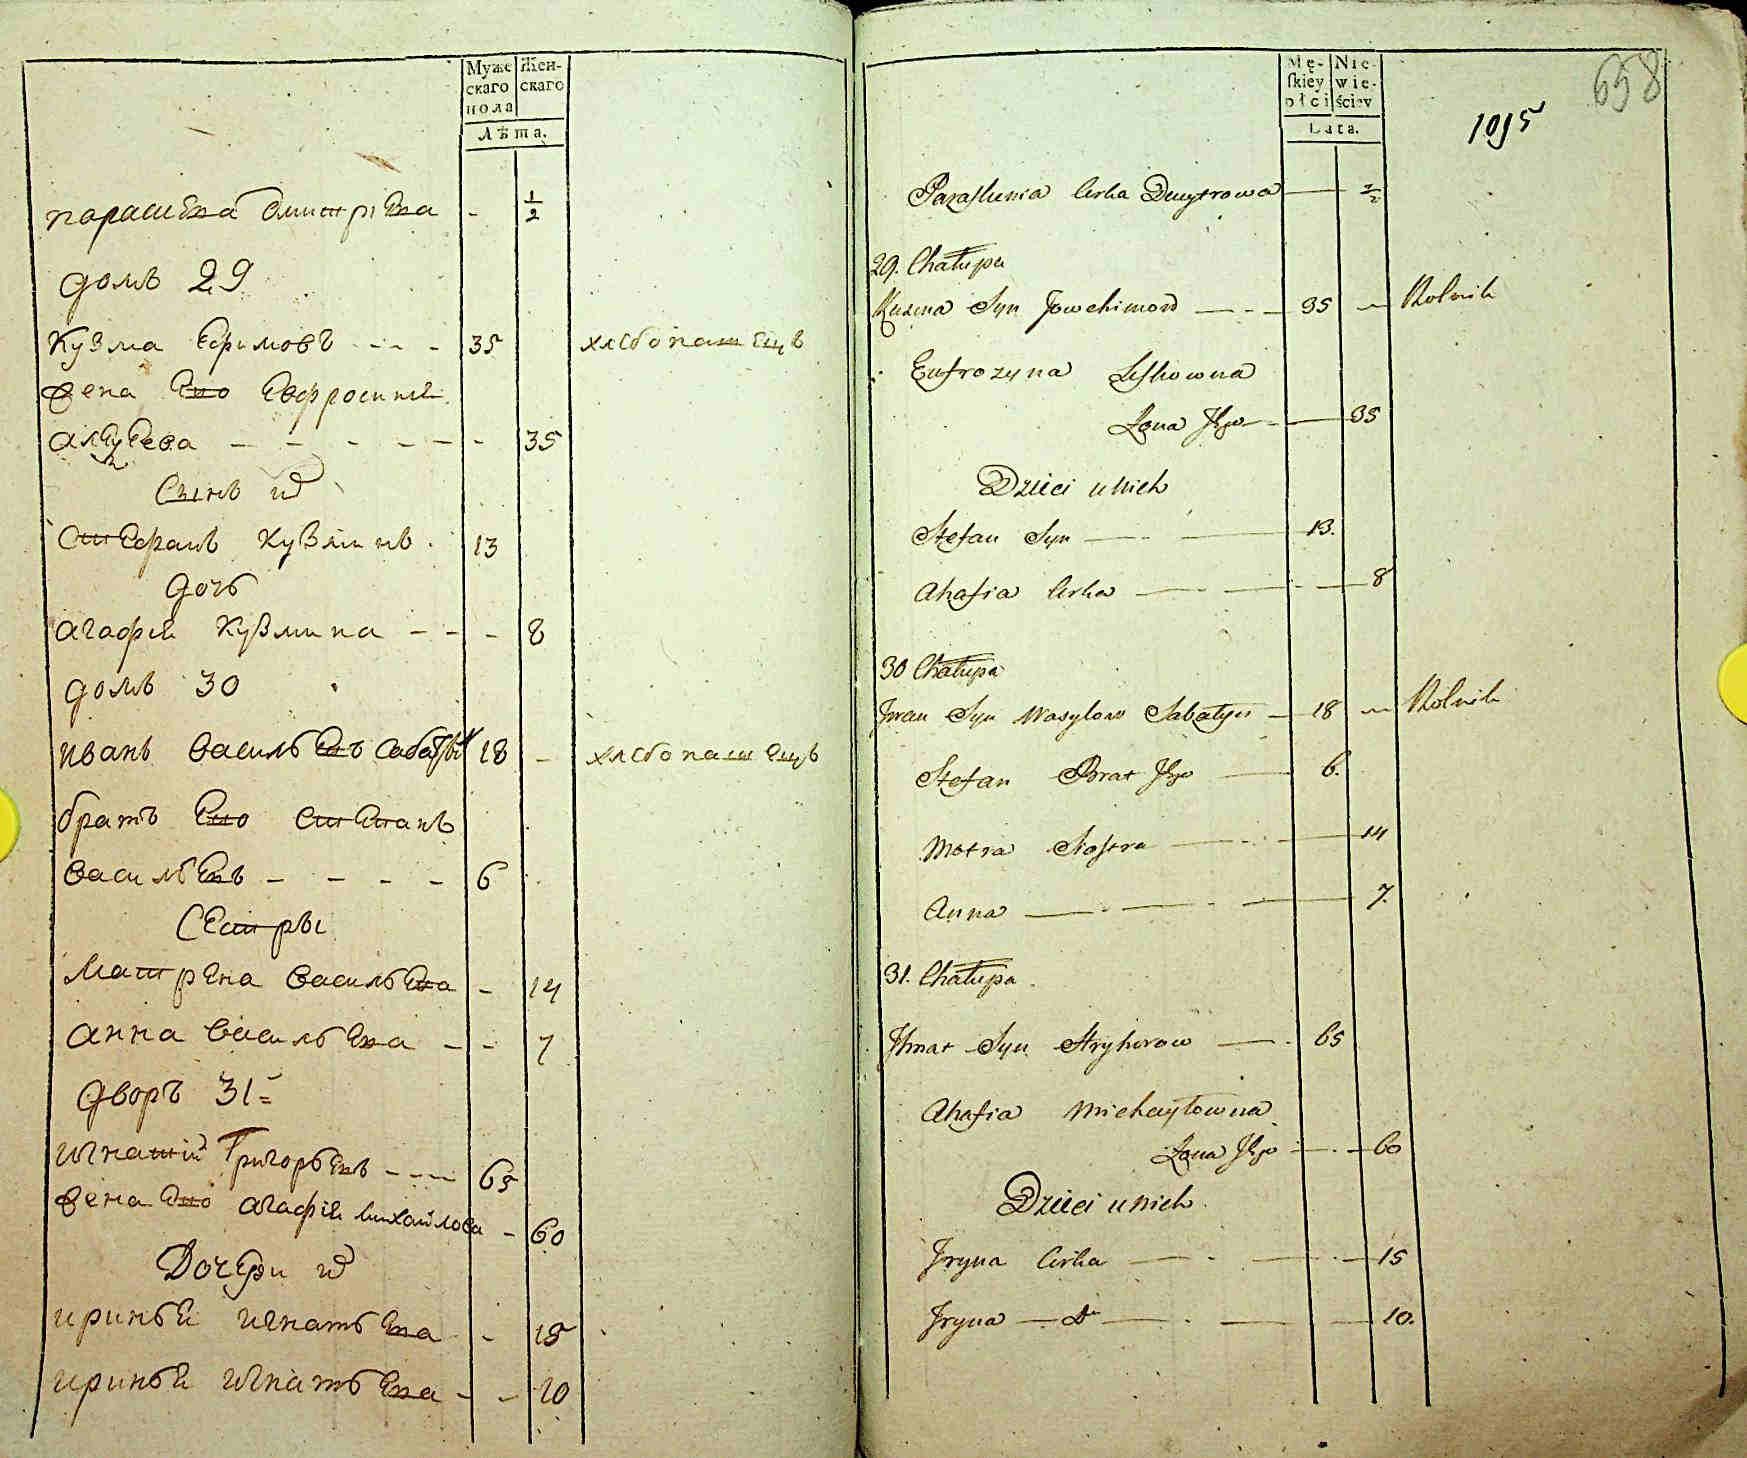 Муже Жен-
скаго скаго
пола
Лѣта.
парасκева дмитриева - ½
домъ 29
Кузма Ефимовъ - - - 35 хлебопашецъ
жена Ево Евфросинея
- - - - - - 35
Сынъ их
Стефанъ Кузминъ 13
дочь
агафея Кузмина - - - 8
домъ 30
иванъ васильевъ сабатын 18 - хлебопашецъ
братъ Ево Степанъ
васильевъ - - - - 6
Сестры
матрена васильева - 14
анна васильева - - 7
дворъ 31=
игнатий Григорьевъ - - - 65
жена Ево агафея михайлова - 60
Дочери их
ириньея игнатьева - 15
ириньея игнатьева - - 10
658
1015
Mę- Nie-
skiey wie-
płci ściey
Lata.
Paraskewia Corka Dmytrowa — ½
29. Chałupa
Kuzma Syn Jowchimow — 35 — Rolnik
Eufrozyna Leskowna
Żona Jego — 35
Dzieci u nich
Stefan Syn — 13.
Ahafia Corka — 8
30 Chałupa
Jwan Syn Wasylow Sabatyn — 18 — Rolnik
Stefan Brat Jego — 6.
Motra Siostra — 14
Anna — 7.
31. Chałupa
Jhnat Syn Hryhorow — 65
Ahafia Michayłowna
Żona Jego — 60
Dzieci u nich
Jryna Corka — 15
Jryna — dto — 10.